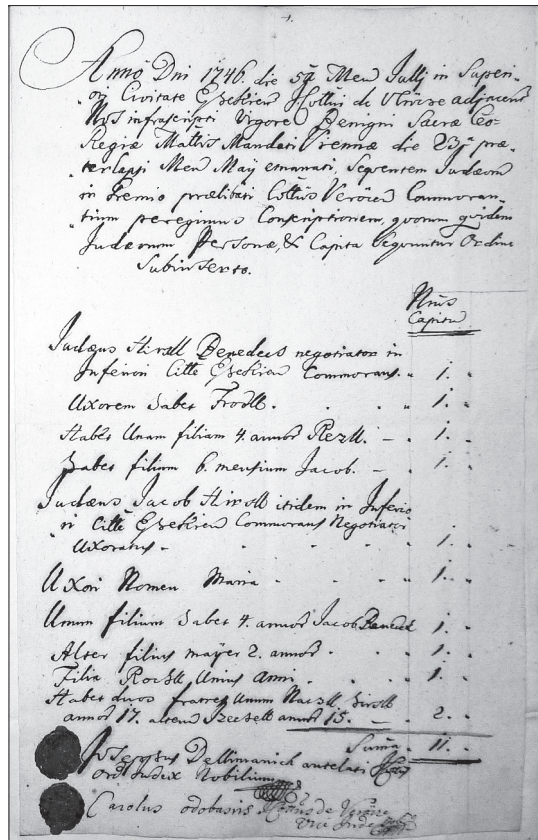 1.
Anno Dni 1746. die 5ta Men Julij in Superi-
ori Civitate Essekien Cottui de Veröcze adjacenti
Nos infrascripti Vigore Benigni Sacræ Cæo-
Regiæ Mattis Mandati Viennæ die 23ia præ-
terlapsi Men Maÿ emanati, Sequentem Judæorum
in Gremio prælibati Cottus Veröcen Commoran-
tium peregimus Conscriptionem, quorum quidem
Judæorum Personæ, & Capita Sequuntur Ordine
Subinserto.
Nrus
Capitu
Judæus Hirschl Benedict negotiator in
Inferiori Citte Essekien Commorans. 1.
Uxorem habet Frodl. 1.
Habet Unam filiam 4. annor Rezll. 1.
Habet filium 6. mensium Jacob. 1.
Judæus Jacob Hirschl itidem in Inferio
ri Citte Essekien Commorans Negotiator
Uxoratus 1.
Uxori Nomen Maria 1.
Unum filium habet 4. annor Jacob Benedict 1.
Alter filius maÿer 2. annor 1.
Filia Roesll Unius Anni. 1.
Habet duos fratres Unum
annor 17. alterum annor 15. 2.
Suma 11.
Josephus Dellimanich antelati Cottus
ord Judex Nobilium
Carolus odobasis Cottus de Veröcze
vice Judex